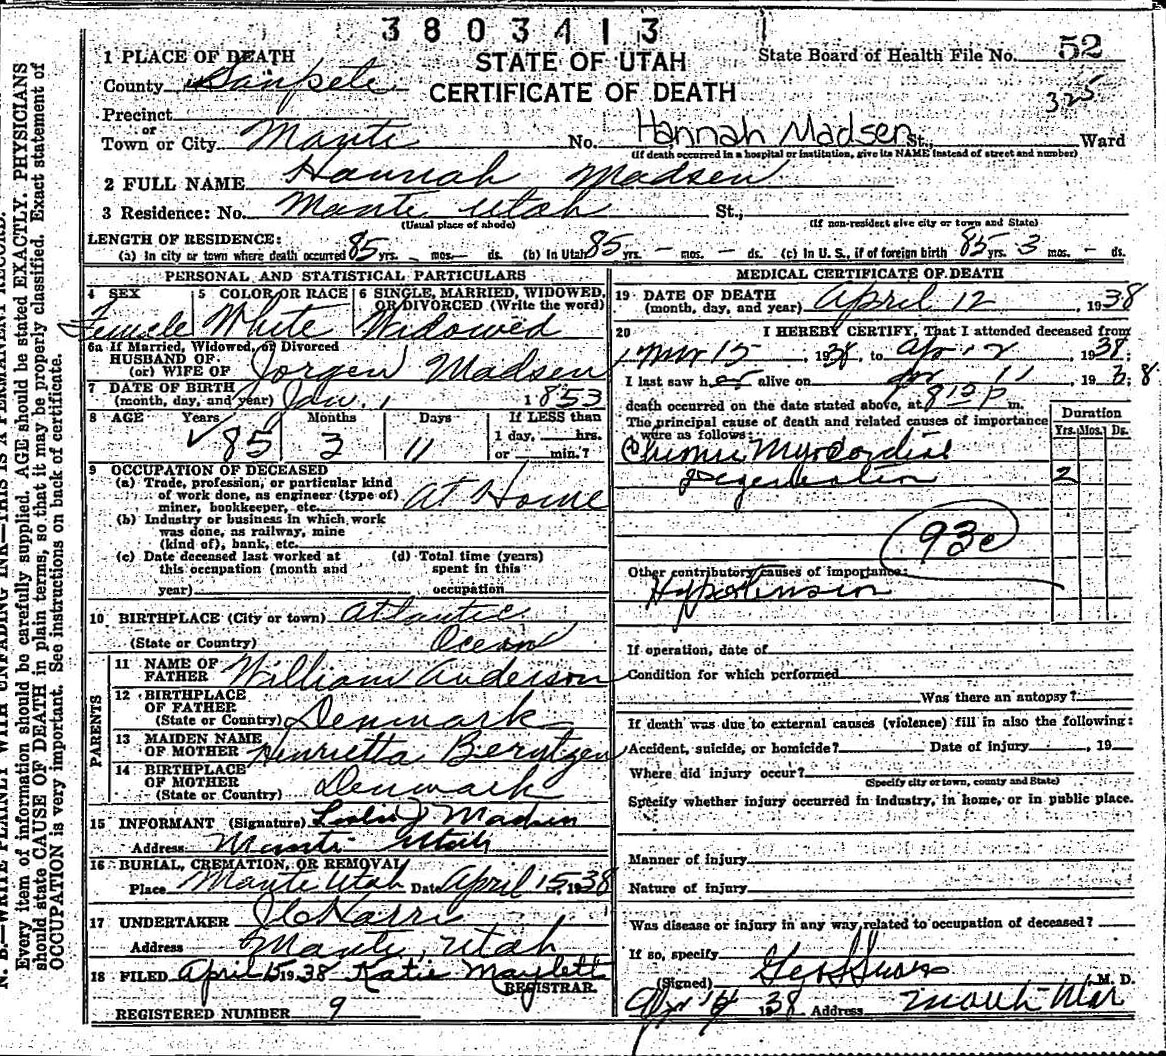 3803413
1 PLACE OF DEATH
STATE OF UTAH
State Board of Health File No. 52
County Sanpete
CERTIFICATE OF DEATH
325
Precinct
or
Town or City Manti No. Hannah Madsen St., Ward
(If death occurred in a hospital or institution, give its NAME instead of street and number)
2 FULL NAME Hannah Madsen
3 Residence: No. Manti Utah St.,
(Usual place of abode) (If non-resident give city or town and State)
LENGTH OF RESIDENCE:
(a) In city or town where death occurred 85 yrs. - mos. - ds. (b) In Utah 85 yrs. - mos. - ds. (c) In U. S., if of foreign birth 85 yrs. 3 mos. - ds.
PERSONAL AND STATISTICAL PARTICULARS
4 SEX 5 COLOR OR RACE 6 SINGLE, MARRIED, WIDOWED, OR DIVORCED (Write the word)
Female White Widowed
6a If Married, Widowed, or Divorced
HUSBAND OF
(or) WIFE OF Jorgen Madsen
7 DATE OF BIRTH
(month, day, and year) Jan. 1 1853
8 AGE Years Months Days If LESS than
85 3 11 1 day, hrs.
or min.?
9 OCCUPATION OF DECEASED
(a) Trade, profession, or particular kind
of work done, as engineer (type of)
miner, bookkeeper, etc. At Home
(b) Industry or business in which work
was done, as railway, mine
(kind of), bank, etc.
(c) Date deceased last worked at (d) Total time (years)
this occupation (month and spent in this
year) occupation
10 BIRTHPLACE (City or town) Atlantic
(State or Country) Ocean
PARENTS
11 NAME OF
FATHER William Anderson
12 BIRTHPLACE
OF FATHER
(State or Country) Denmark
13 MAIDEN NAME
OF MOTHER Henrietta Berntzen
14 BIRTHPLACE
OF MOTHER
(State or Country) Denmark
15 INFORMANT (Signature) Leslie J Madsen
Address Manti Utah
16 BURIAL, CREMATION, OR REMOVAL
Place Manti Utah Date April 15, 1938
17 UNDERTAKER
Address Manti, Utah
18 FILED April 15 1938 Katie Maylett
REGISTRAR.
REGISTERED NUMBER 9
MEDICAL CERTIFICATE OF DEATH
19 DATE OF DEATH
(month, day, and year) April 12, 1938
20 I HEREBY CERTIFY, That I attended deceased from
Mar 15, 1938, to Apr 12 1938;
I last saw her alive on Apr 11, 1938
death occurred on the date stated above, at 8 12 P m.
The principal cause of death and related causes of importance
were as follows:
Duration
Yrs. Mos. Ds.
Chronic Myocardial
Degeneration 2
93c
Other contributory causes of importance:
Hypotension
If operation, date of
Condition for which performed
Was there an autopsy?
If death was due to external causes (violence) fill in also the following:
Accident, suicide, or homicide? Date of injury , 19
Where did injury occur?
(Specify city or town, county and State)
Specify whether injury occurred in industry, in home, or in public place.
Manner of injury
Nature of injury
Was disease or injury in any way related to occupation of deceased?
If so, specify
(Signed) M. D.
Apr 14 1938 Address Manti Utah
N. B.—WRITE PLAINLY WITH UNFADING INK—THIS IS A PERMANENT RECORD.
Every item of information should be carefully supplied. AGE should be stated EXACTLY. PHYSICIANS
should state CAUSE OF DEATH in plain terms, so that it may be properly classified. Exact statement of
OCCUPATION is very important. See instructions on back of certificate.